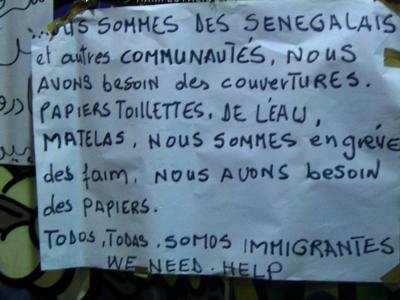 ...OUS SOMMES DES SENEGALAIS
et autres COMMUNAUTÉS, NOUS
AVONS besoin des couvertures.
PAPIERS TOILLETTES, DE L'EAU,
MATELAS, NOUS SOMMES en grève
des faim, NOUS AVONS besoin
des PAPIERS.
TODOS, TODAS, SOMOS IMMIGRANTES
WE NEED. HELP